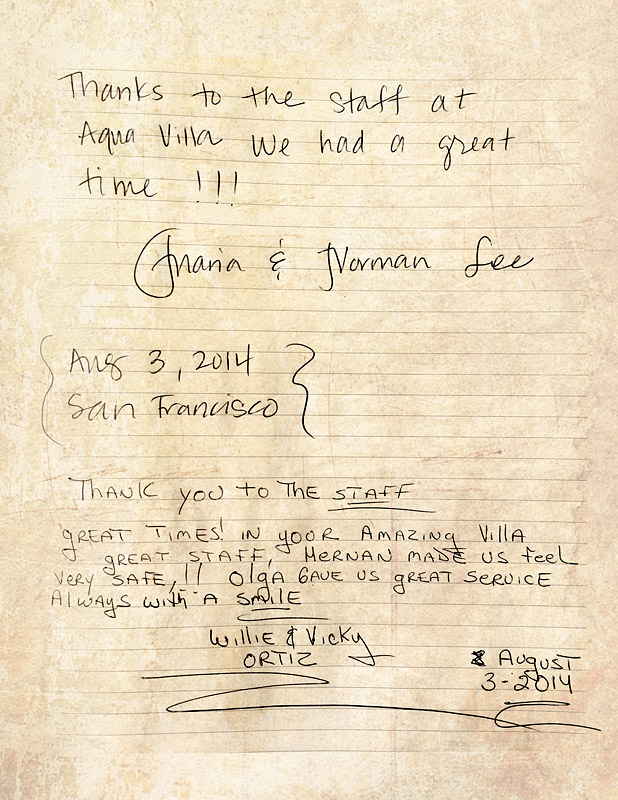 Thanks to the staff at
Aqua Villa We had a great
time !!!
& Norman Lee
Aug 3, 2014
San Francisco
THANK you to THE STAFF
GREAT TIMES! IN YOUR AMAZING VillA
GREAT STAFF, HERNAN MADE US FEEL
VERY SAFE,!! OlgA GAVE US GREAT SERVICE
Always with A SMILE
Willie & Vicky
ORTIZ
AUGUST
3-2014